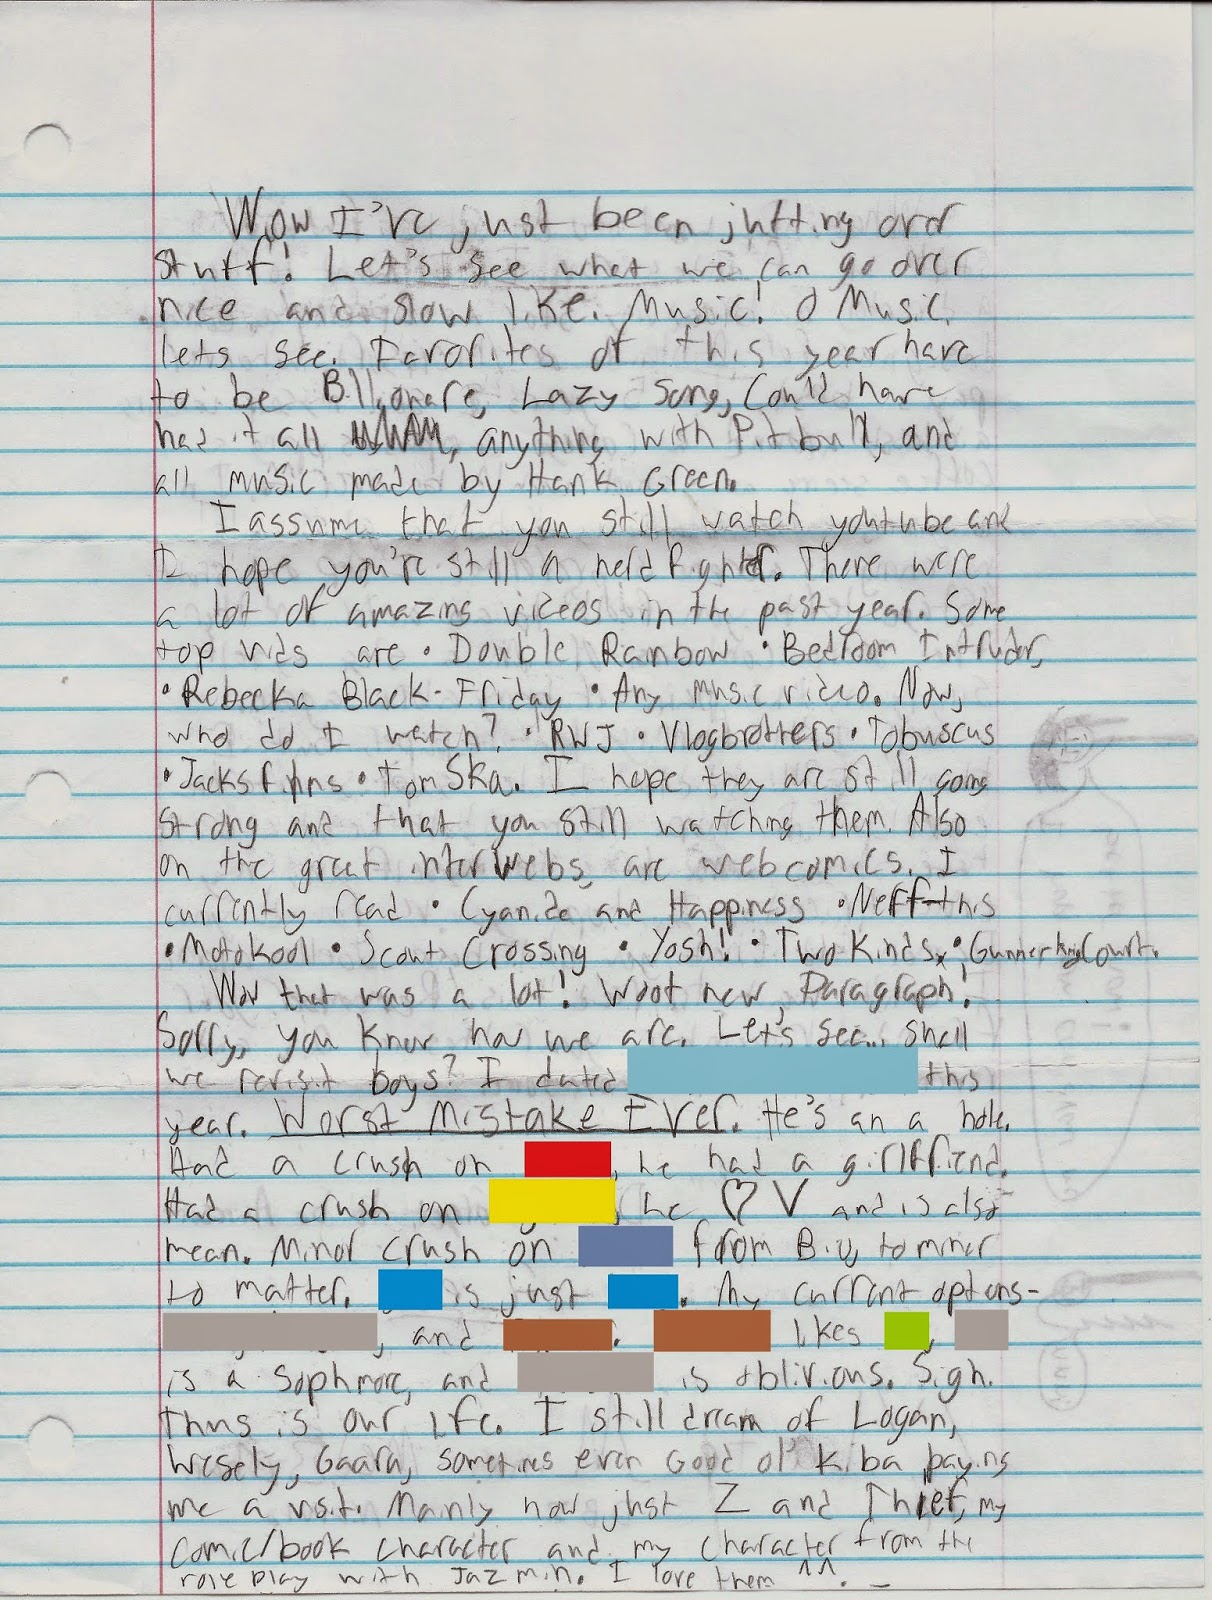 Wow I've just been jutting over
stuff! Let's see what we can go over
nice and slow like. Music! O Music,
lets see. Favorites of this year have
to be Billionere, Lazy Song, Could have
had it all, anything with Pitbull, and
all music made by Hank Green.
I assume that you still watch youtube and
I hope you're still a nerdfighter. There were
a lot of amazing videos in the past year. Some
top vids are • Double Rainbow • Bedroom Intruder,
• Rebecka Black - Friday • Any music video. Now,
who do I watch? • RWJ • Vlogbrothers • Tobuscus
• Jacksfilms • TomSka. I hope they are still going
strong and that you still watching them. Also
on the great interwebs, are webcomics. I
currently read • Cyanide and Happiness • Neff-this
• Motokool • Scout Crossing • Yosh! • Two Kinds, • Gunnerkrigg Court.
Wow that was a lot! Woot new Paragraph!
Sorry, you know how we are. Let's see... shall
we revisit boys? I dated this
year. Worst Mistake Ever. He's an a hole.
Had a crush on , he had a girlffriend.
Had a crush on , he ♡ V and is also
mean. Minor crush on from Biv, to minor
to matter. is just . My current options-
, and . likes ,
is a Sophmore, and is oblivious. Sigh.
Thus is our life. I still dream of Logan,
Wesely, Gaara, sometimes even Good ol' kiba paying
me a visit. Mainly now just Z and Thief, my
comic/book character and my character from the
role play with Jazmin. I love them ^^.